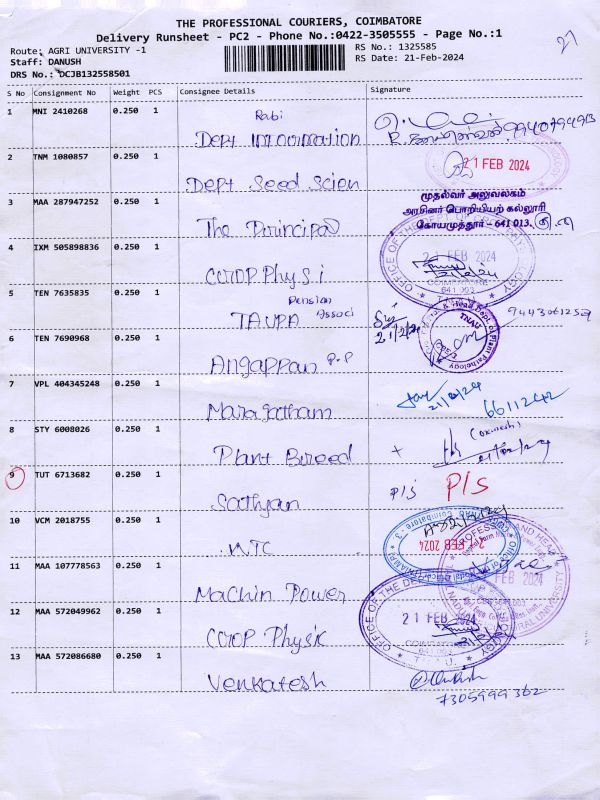 THE PROFESSIONAL COURIERS, COIMBATORE
Delivery Runsheet - PC2 - Phone No.:0422-3505555 - Page No.:1
Route: AGRI UNIVERSITY -1
RS No.: 1325585
Staff: DANUSH
RS Date: 21-Feb-2024
DRS No.: DCJB132558501
27
S No Consignment No Weight PCS Consignee Details Signature
1 MNI 2410268 0.250 1 Rabi
Dept Information
9940794913
2 TNM 1080857 0.250 1
Dept Seed Scien
21 FEB 2024
3 MAA 287947252 0.250 1
The Principal
முதல்வர் அலுவலகம்
அரசினர் பொறியியற் கல்லூரி
கோயமுத்தூர் – 641 013.
4 IXM 505898836 0.250 1
COROP Phys.i
OFFICE OF THE
21 FEB 2024
21/2/24
COIMBATORE
641 003
T.N.A.U.
5 TEN 7635835 0.250 1 Pension
TAUPA Associ
21/2/24
9443061252
TNAU
Head Dept. of Plant Pathology
6 TEN 7690968 0.250 1
Angappan P.P
7 VPL 404345248 0.250 1
Maragatham
21/2/24
6611242
8 STY 6008026 0.250 1
Plant Breed
21/02/24
9 TUT 6713682 0.250 1
Sathyan
P/S P/S
10 VCM 2018755 0.250 1
WTC
21 FEB 2024
11 MAA 107778563 0.250 1
Machin Power
FEB 2024
12 MAA 572049962 0.250 1
COROP Physic
OFFICE OF THE
21 FEB 2024
COIMBATORE
641 003
T.N.A.U.
13 MAA 572086680 0.250 1
Venkatesh
7305999362